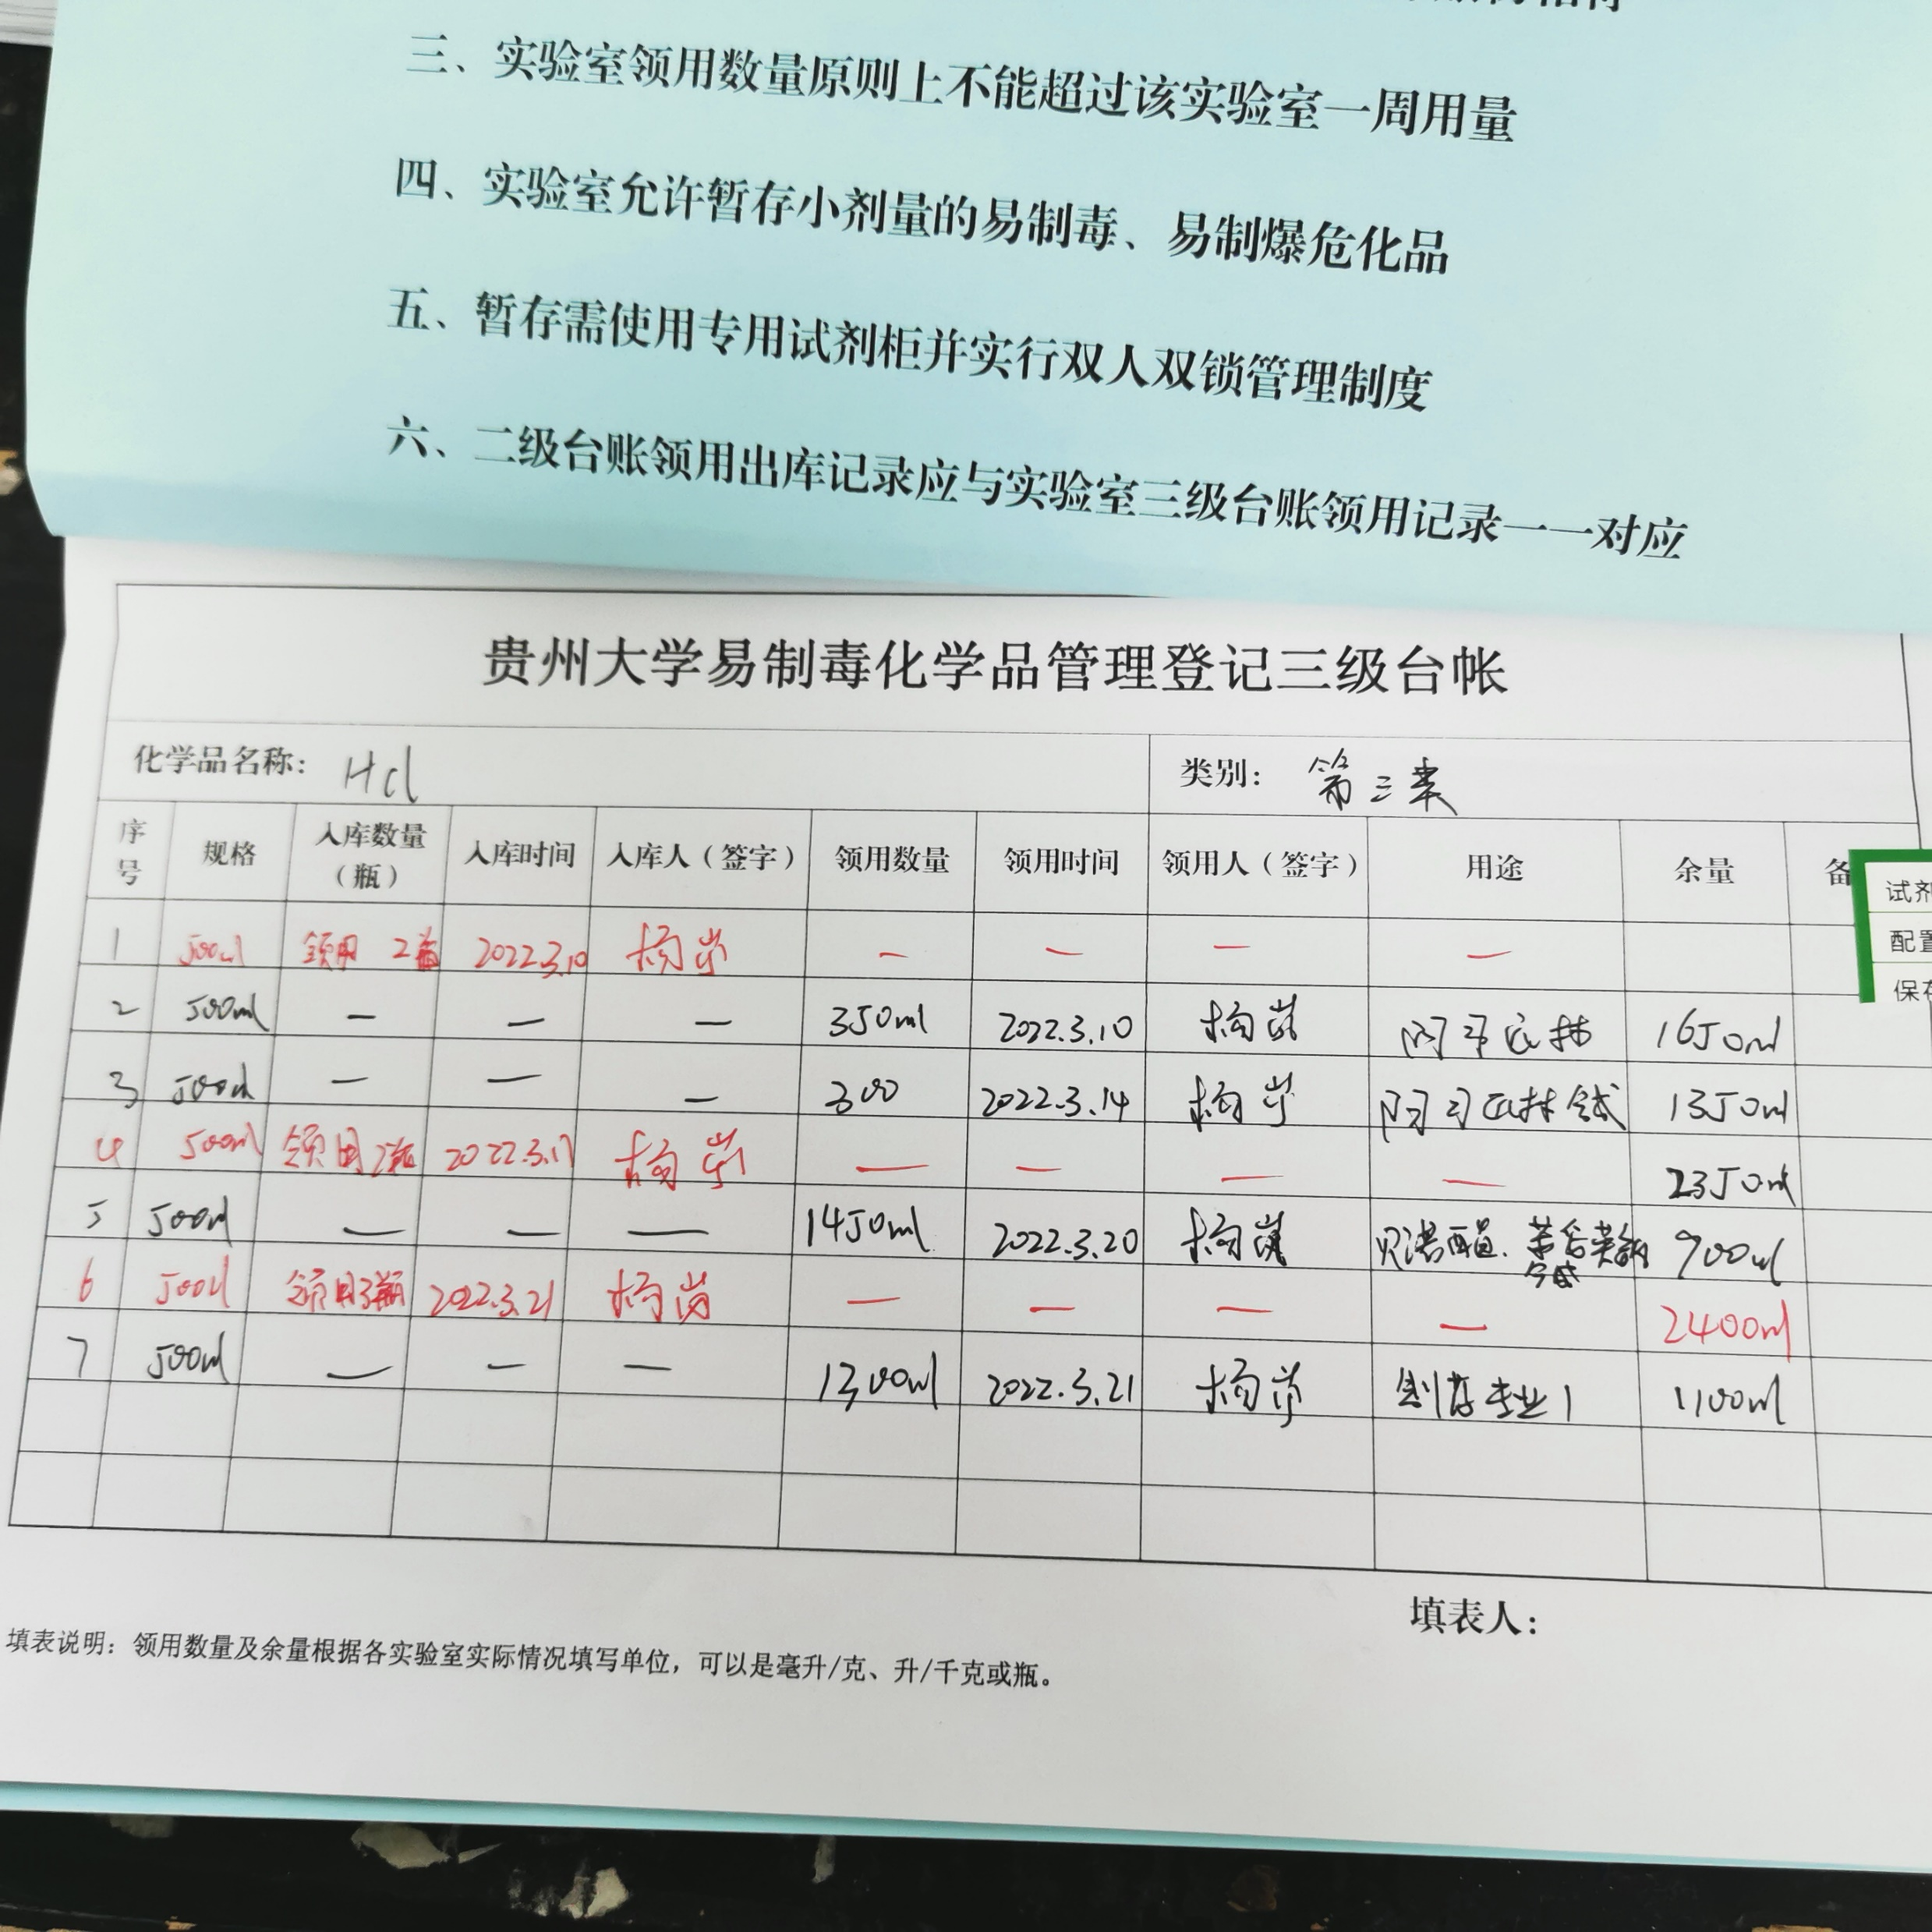 三、实验室领用数量原则上不能超过该实验室一周用量
四、实验室允许暂存小剂量的易制毒、易制爆危化品
五、暂存需使用专用试剂柜并实行双人双锁管理制度
六、二级台账领用出库记录应与实验室三级台账领用记录一一对应
贵州大学易制毒化学品管理登记三级台帐
化学品名称: HCl 类别: 第三类
序号 规格 入库数量（瓶） 入库时间 入库人（签字） 领用数量 领用时间 领用人（签字） 用途 余量 备
1 500ml 领用 2瓶 2022.3.10 杨 — — — —
2 500ml — — — 350ml 2022.3.10 杨 1650ml
3 500ml — — — 300 2022.3.14 杨 1350ml
4 500ml 领用2瓶 2022.3.17 杨 — — — — 2350ml
5 500ml — — — 1450ml 2022.3.20 杨 900ml
6 500ml 领用3瓶 2022.3.21 杨 — — — — 2400ml
7 500ml — — — 1300ml 2022.3.21 杨 制药专业1 1100ml
试剂
配置
保存
填表人:
填表说明: 领用数量及余量根据各实验室实际情况填写单位，可以是毫升/克、升/千克或瓶。